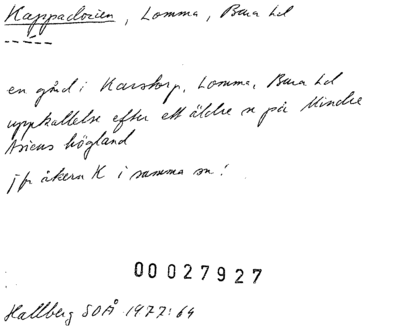 Kappadocien, Lomma, Bara hd
en gård i Karstorp, Lomma, Bara hd
uppkallelse efter ett äldre n på Mindre
Asiens högland
jfr åkern K i samma sn!
00027927
Hallberg SOÅ 1977:64